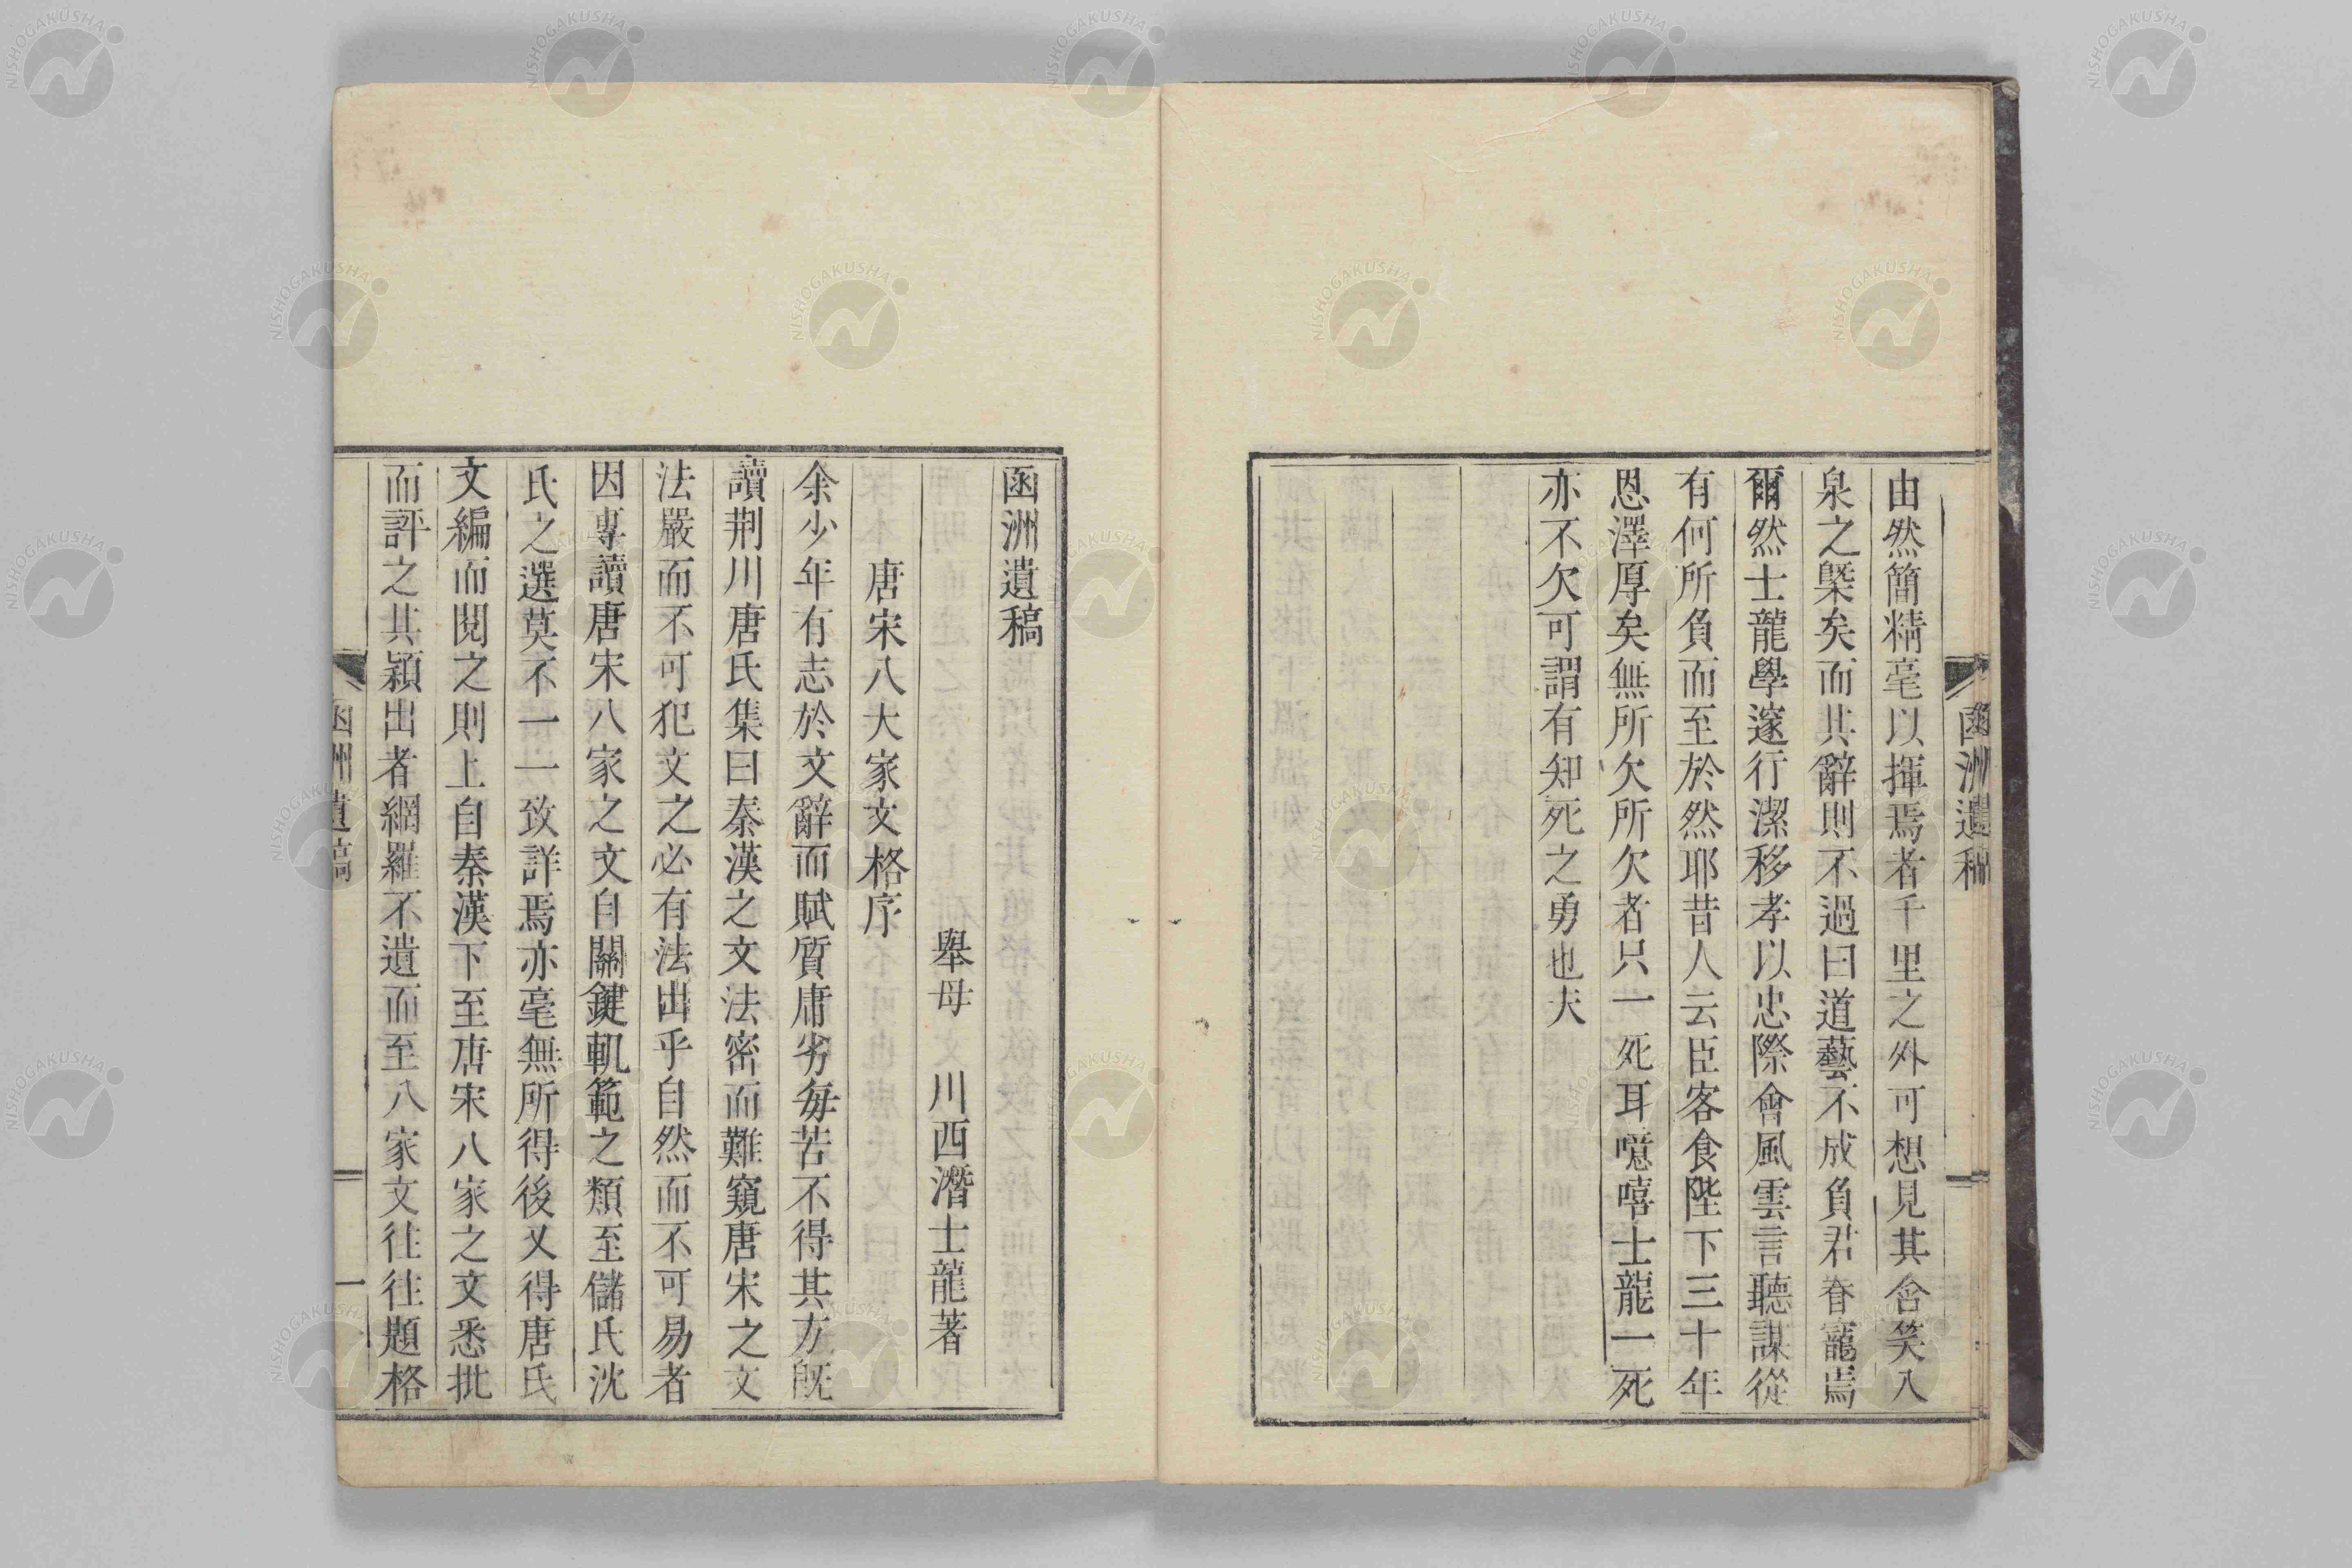 函洲遺稿
由然簡精毫以揮焉者千里之外可想見其含笑入
泉之槩矣而其辭則不過曰道藝不成負君眷寵焉
爾然士龍學邃行潔移孝以忠際會風雲言聽謀從
有何所負而至於然耶昔人云臣客食陛下三十年
恩澤厚矣無所欠所欠者只一死耳噫嘻士龍一死
亦不欠可謂有知死之勇也夫
函洲遺稿
舉母 川西潛士龍著
唐宋八大家文格序
余少年有志於文辭而賦質庸劣每苦不得其方旣
讀荆川唐氏集曰秦漢之文法密而難窺唐宋之文
法嚴而不可犯文之必有法出乎自然而不可易者
因專讀唐宋八家之文自關鍵軌範之類至儲氏沈
氏之選莫不一一致詳焉亦毫無所得後又得唐氏
文編而閱之則上自秦漢下至唐宋八家之文悉批
而評之其穎出者網羅不遺而至八家文往往題格
函洲遺稿
一
NISHOGAKUSHA